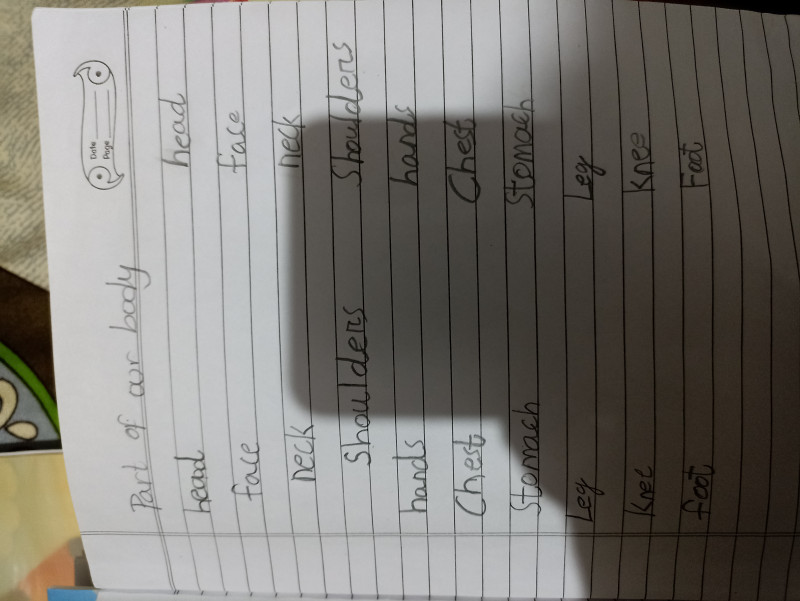 Date
Page
Part of our body
head head
face face
neck neck
Shoulders Shoulders
hands hands
Chest Chest
Stomach Stomach
Leg Leg
Knee Knee
foot Foot